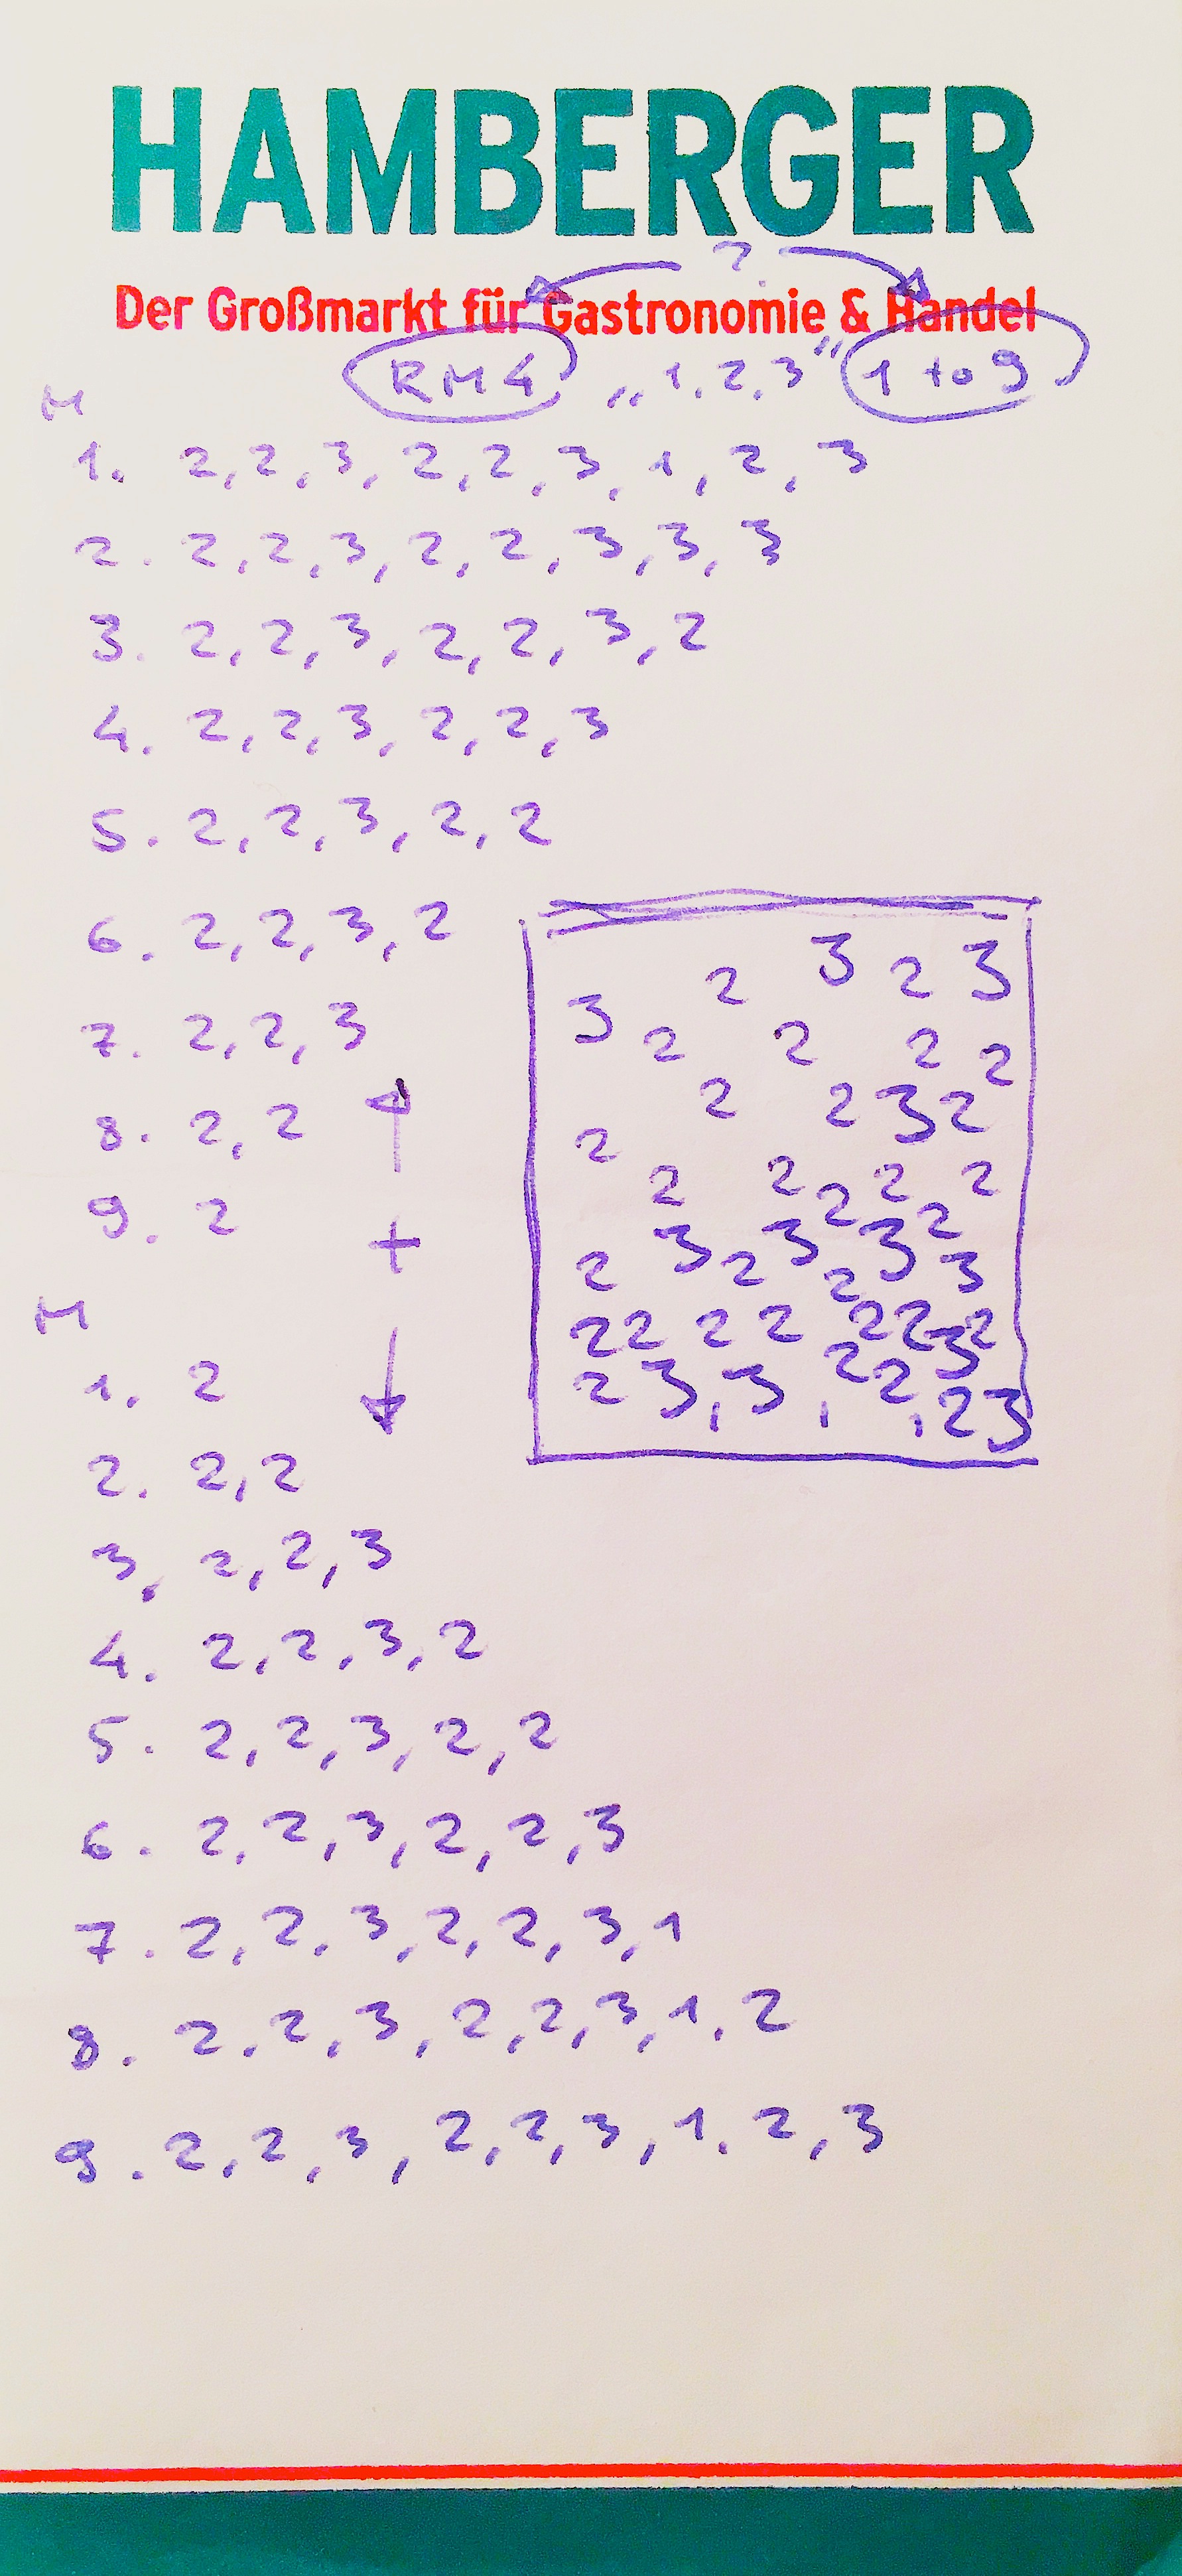 HAMBERGER
?
Der Großmarkt für Gastronomie & Handel
RM4 „1,2,3" 1 to 9
M
1. 2,2,3,2,2,3,1,2,3
2. 2,2,3,2,2,3,3,3
3. 2,2,3,2,2,3,2
4. 2,2,3,2,2,3
5. 2,2,3,2,2
6. 2,2,3,2
7. 2,2,3
8. 2,2
9. 2
+
3 2 3
2
3 2 2 2 2
2 2 3 2
2
2 2 2 2 2 2
2 3 2 3 2 3 3
2 2 2 2 2 2 3 2
2 3, 3, 2 2, 2 3
M
1. 2
2. 2,2
3, 2,2,3
4. 2,2,3,2
5. 2,2,3,2,2
6. 2,2,3,2,2,3
7. 2,2,3,2,2,3,1
8. 2,2,3,2,2,3,1,2
9. 2,2,3,2,2,3,1,2,3